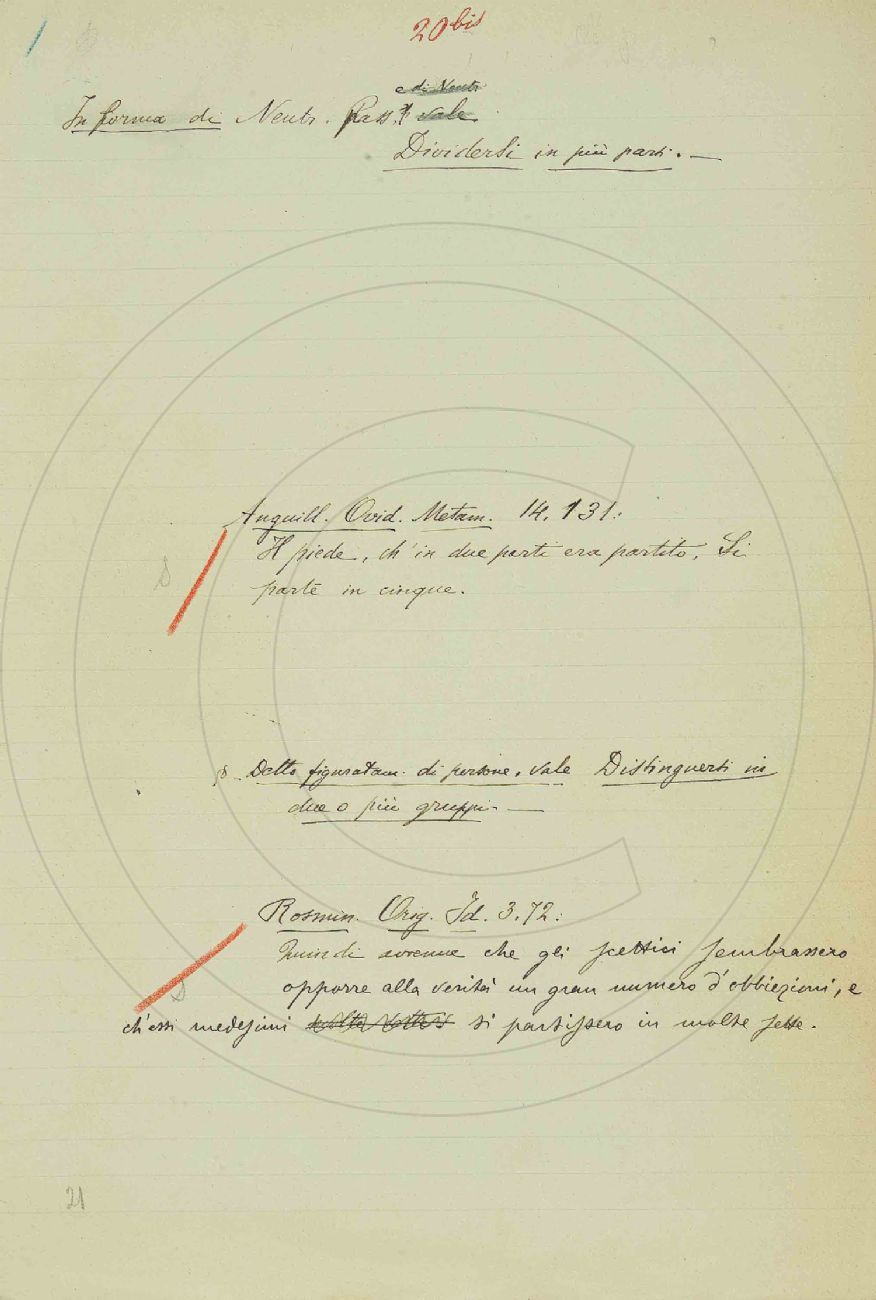 20 bis
e di Neutr.
In forma di Neutr. Pass. vale
Dividersi in più parti. —
Anguill. Ovid. Metam. 14. 131:
Il piede, ch'in due parti era partito, Si
parte in cinque.
§ Detto figuratam. di persone, vale Distinguersi in
due o più gruppi. —
Rosmin. Orig. Id. 3. 72:
Quindi avvenne che gli scettici sembrassero
opporre alla verità un gran numero d'obbiezioni, e
ch'essi medesimi si partissero in molte sette.
21